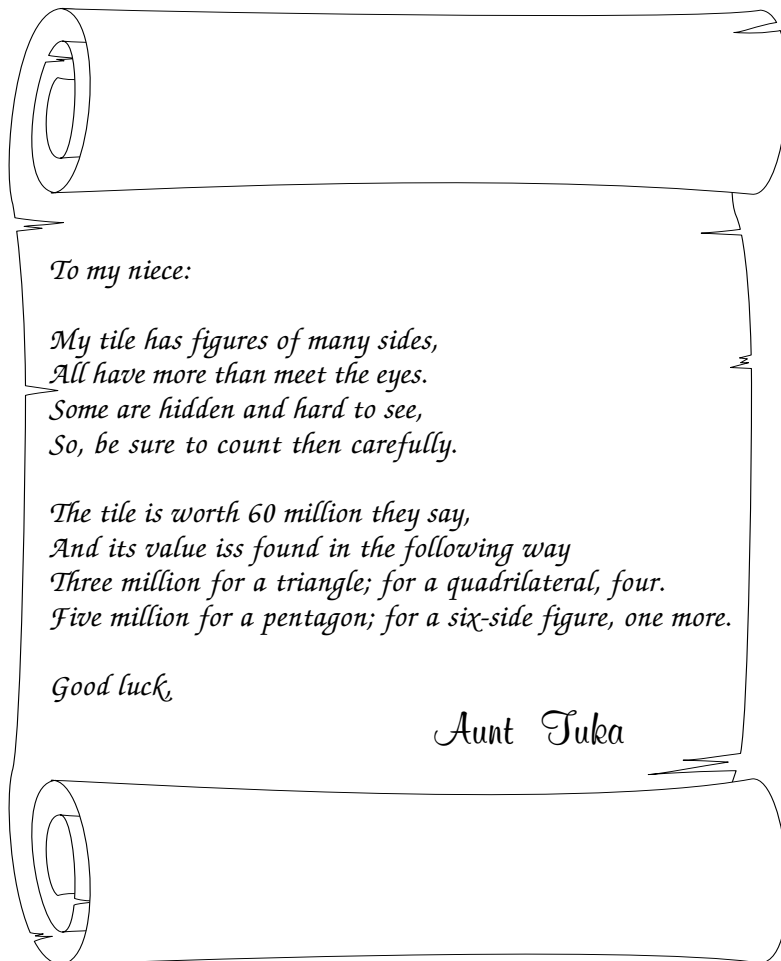 To my niece:
My tile has figures of many sides,
All have more than meet the eyes.
Some are hidden and hard to see,
So, be sure to count then carefully.
The tile is worth 60 million they say,
And its value iss found in the following way
Three million for a triangle; for a quadrilateral, four.
Five million for a pentagon; for a six-side figure, one more.
Good luck,
Aunt Tuka